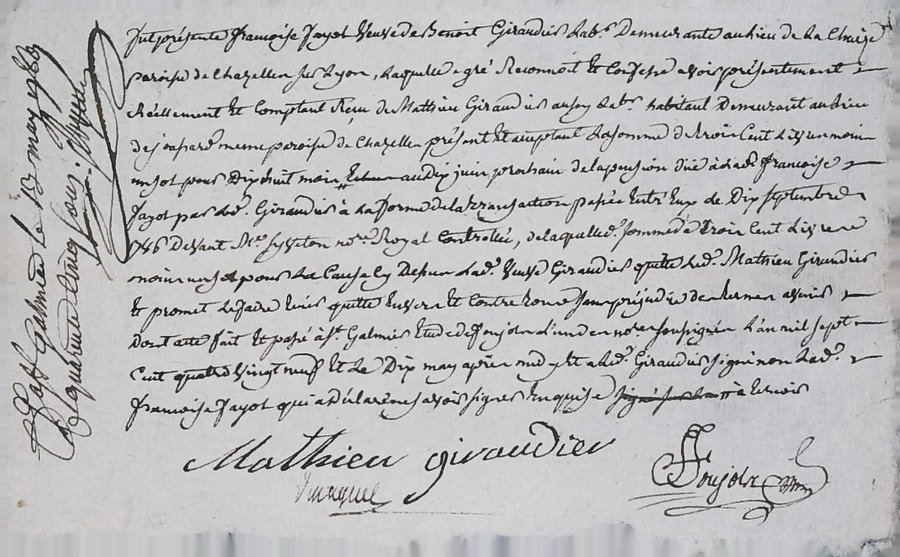 Fut présente Francoise Jayot veuve de Benoit Giraudier lab.r Demeurante au lieu de La Chieze
paroisse de Chazelles sur Lyon, Laquelle de gré Reconnoit Et Confesse avoir présentement
Réellement Et Comptant Reçu de Mathieu Giraudier lab.r habitant Demeurant au lieu
meme paroisse de Chazelles présent Et acceptant La somme de trois Cent Livres moins
un sol pour Dix huit mois au dix juin prochain de la pension due à lad. francoise
Jayot par led. Giraudier à La forme de la transaction passée Entr'Eux le Dix septembre
Devant M.e no.re Royal Controllée, de laquelle d. somme de trois Cent Livres
moins un sol pour La Cause cy Dessus Lad.e veuve Giraudier quitte led. Mathieu Giraudier
Et promet Le faire tenir quitte Envers Et Contre tous sans préjudice des termes à venir
Dont acte fait Et passé à S.t Galmier Etude de Soujols l'un des no.res soussignés L'an mil sept
Cent quatre vingt neuf Et Le Dix may après midy Et a led. Giraudier signé non Lad.e
francoise Jayot qui a déclaré ne savoir signer Enquise
Mathieu giraudier
Soujols
Galmier Le 13 may 1789
quarante cinq sous